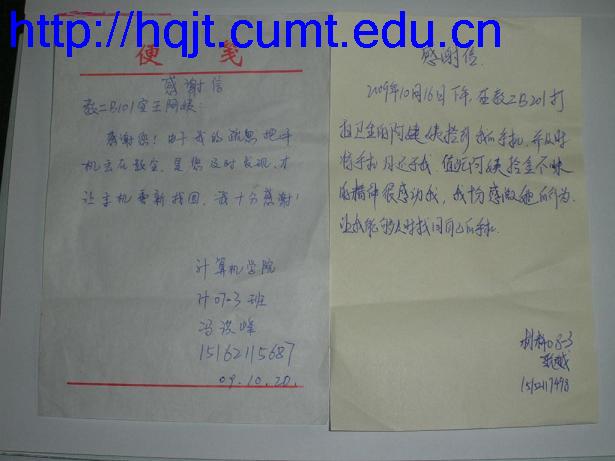 http://hqjt.cumt.edu.cn
便 笺
感谢信
教二B101室王阿姨:
感谢您!由于我的疏忽把手
机丢在教室,是您及时发现,才
让手机重新找回,我十分感谢!
计算机学院
计07-3班
冯俊峰
15162115687
09.10.20.
感谢信
2009年10月16日下午,在教二B201打
扫卫生的阿姨捡到我的手机,并及时
将手机归还于我,阿姨拾金不昧
的精神很感动我,我十分感激她的行为
让我能够及时找回自己的手机.
材料08-3